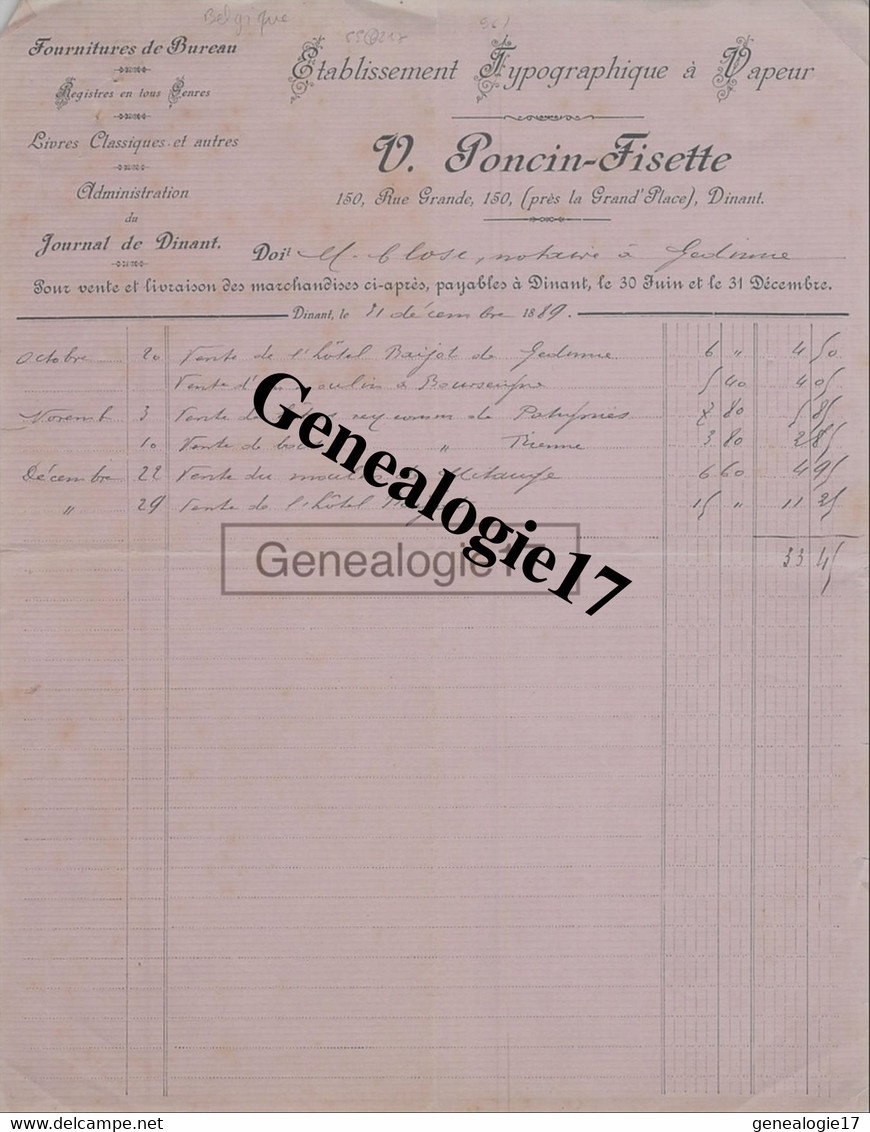 Belgique
Fournitures de Bureau
Registres en tous Genres
Livres Classiques et autres
Administration
du
Journal de Dinant.
Etablissement Typographique à Vapeur
V. Poncin-Fisette
150, Rue Grande, 150, (près la Grand'Place), Dinant.
Doit M. Close, notaire à Gedinne
Pour vente et livraison des marchandises ci-après, payables à Dinant, le 30 Juin et le 31 Décembre.
Dinant, le 31 décembre 1889.
Octobre 20 Vente de l'hôtel Baijot de Gedinne 6 " 4 50
Vente d'un moulin à Bourseigne 5 40 4 05
Novemb 3 Vente de de Patignies 80 5 85
10 Vente de " Rienne 3 80 2 85
Décembre 22 Vente du moulin de 6 60 4 95
" 29 Vente de l'hôtel 15 " 11 25
33 45
Genealogie17
Genealogie17
delcampe.net
genealogie17